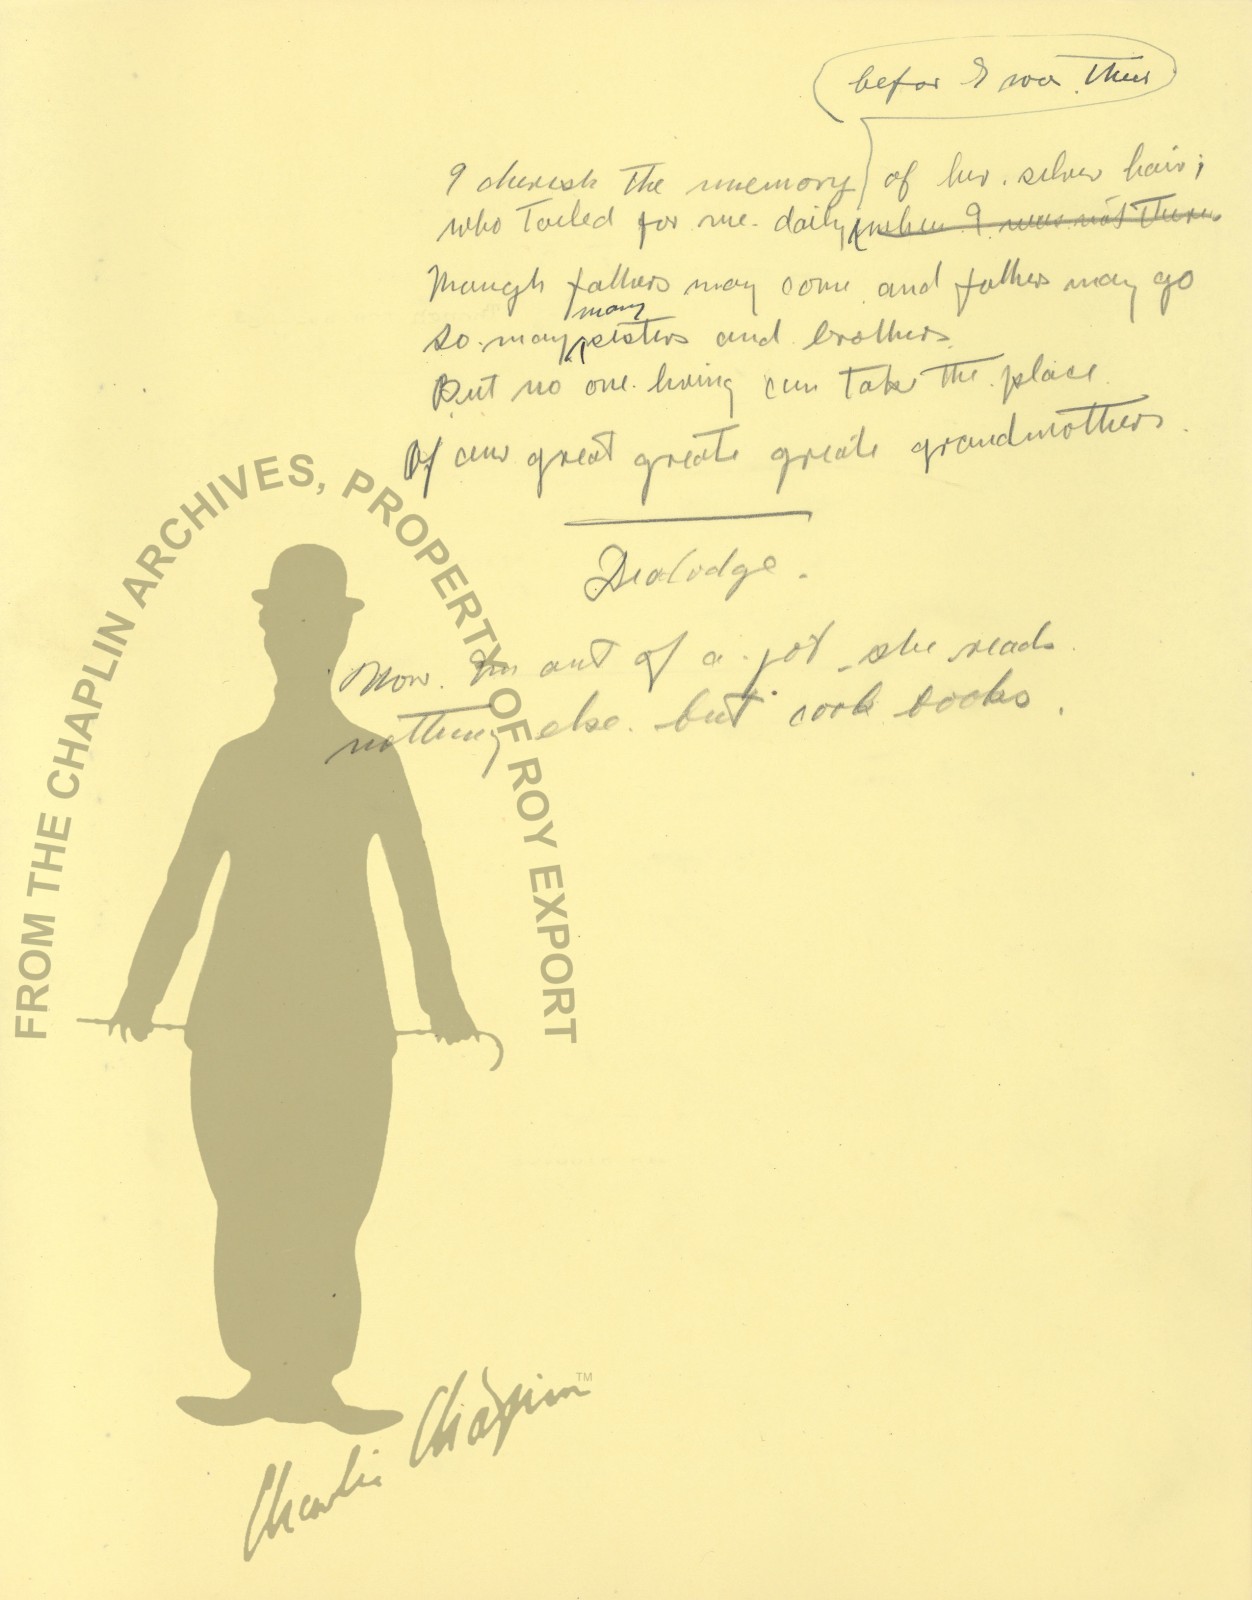 befor I was there
I cherish the memory of her silver hair;
who toiled for me daily, when I was not there
Though fathers may come and fathers may go
So may many sisters and brothers
But no one living can take the place
Of our great greate greate grandmothers.
Dialodge.
Now I'm out of a job she reads
nothing else but cook books.
FROM THE CHAPLIN ARCHIVES, PROPERTY OF ROY EXPORT
Charlie Chaplin™